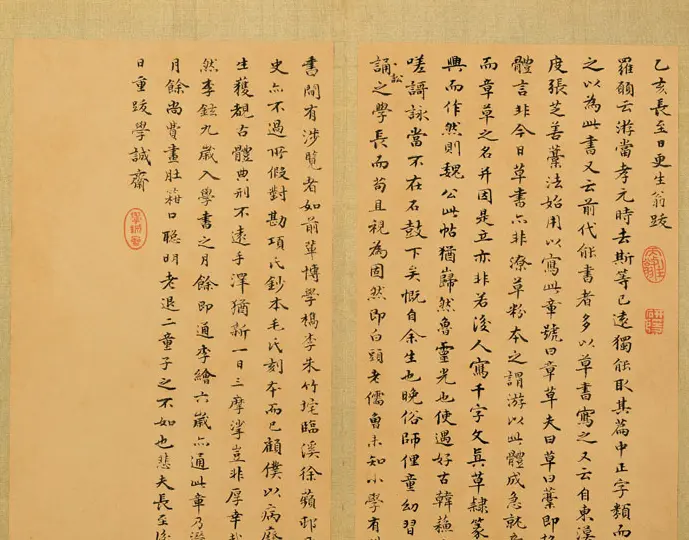 乙亥長至日更生翁跋
羅願云游當孝元時去斯等已遠獨能取其篇中正字類而
之以為此書又云前代能書者多以草書寫之又云自東漢
度張芝善藁法始用以寫此章號曰章草夫曰草曰藁即
體言非今日草書亦非潦草粉本之謂游以此體成急就
而章草之名并因是立亦非若後人寫千字文真草隸篆
興而作然則魏公此帖猶巋然魯靈光也使遇好古韓蘇
嗟諝詠當不在石鼓下矣慨自余生也晚俗師俚童幼習
誦訟之學長而苟且視為固然即白頭老儒曾未知小學有
書間有涉覽者如前輩博學橋李朱竹垞臨溪徐蘋村
史亦不過冊假對勘項氏鈔本毛氏刻本而已顧僕以病廢
生獲覩古體典刑不遠手澤猶新一日三摩挲豈非厚幸
然李鉉九歲入學書之月餘即通李繪六歲亦通此章乃
月餘尚費畫肚箝口聰明老退二童子之不如也悲夫長至後
日重跋學誠齋